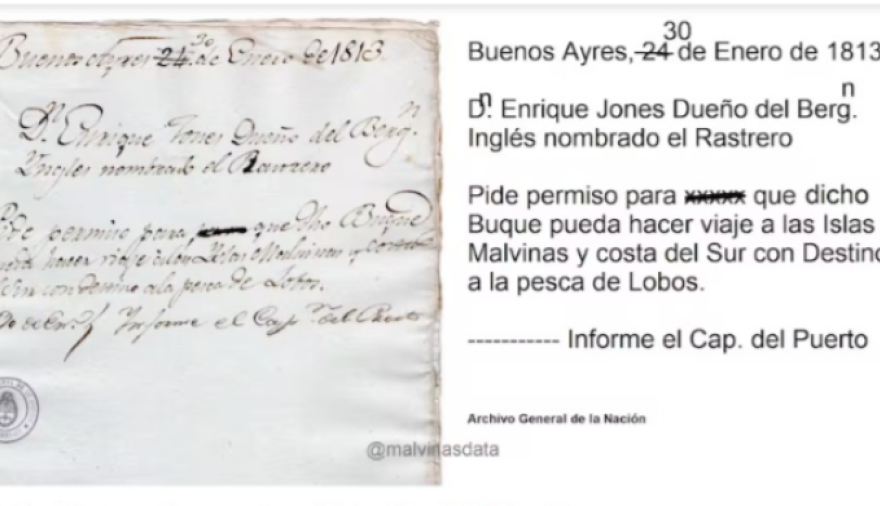 Buenos Ayres 24 30 de Enero de 1813.
Dn. Enrique Jones Dueño del Bergn.
Ingles nombrado el Rastrero
Pide permiso para que dho Buque
pueda hacer viaje a las Islas Malvinas y costa
del Sur con destino a la pesca de Lobos.
Informe el Capn. del Puerto
30
Buenos Ayres, 24 de Enero de 1813
Dn. Enrique Jones Dueño del Bergn.
Inglés nombrado el Rastrero
Pide permiso para xxxxx que dicho
Buque pueda hacer viaje a las Islas
Malvinas y costa del Sur con Destino
a la pesca de Lobos.
----------- Informe el Cap. del Puerto
Archivo General de la Nación
@malvinasdata